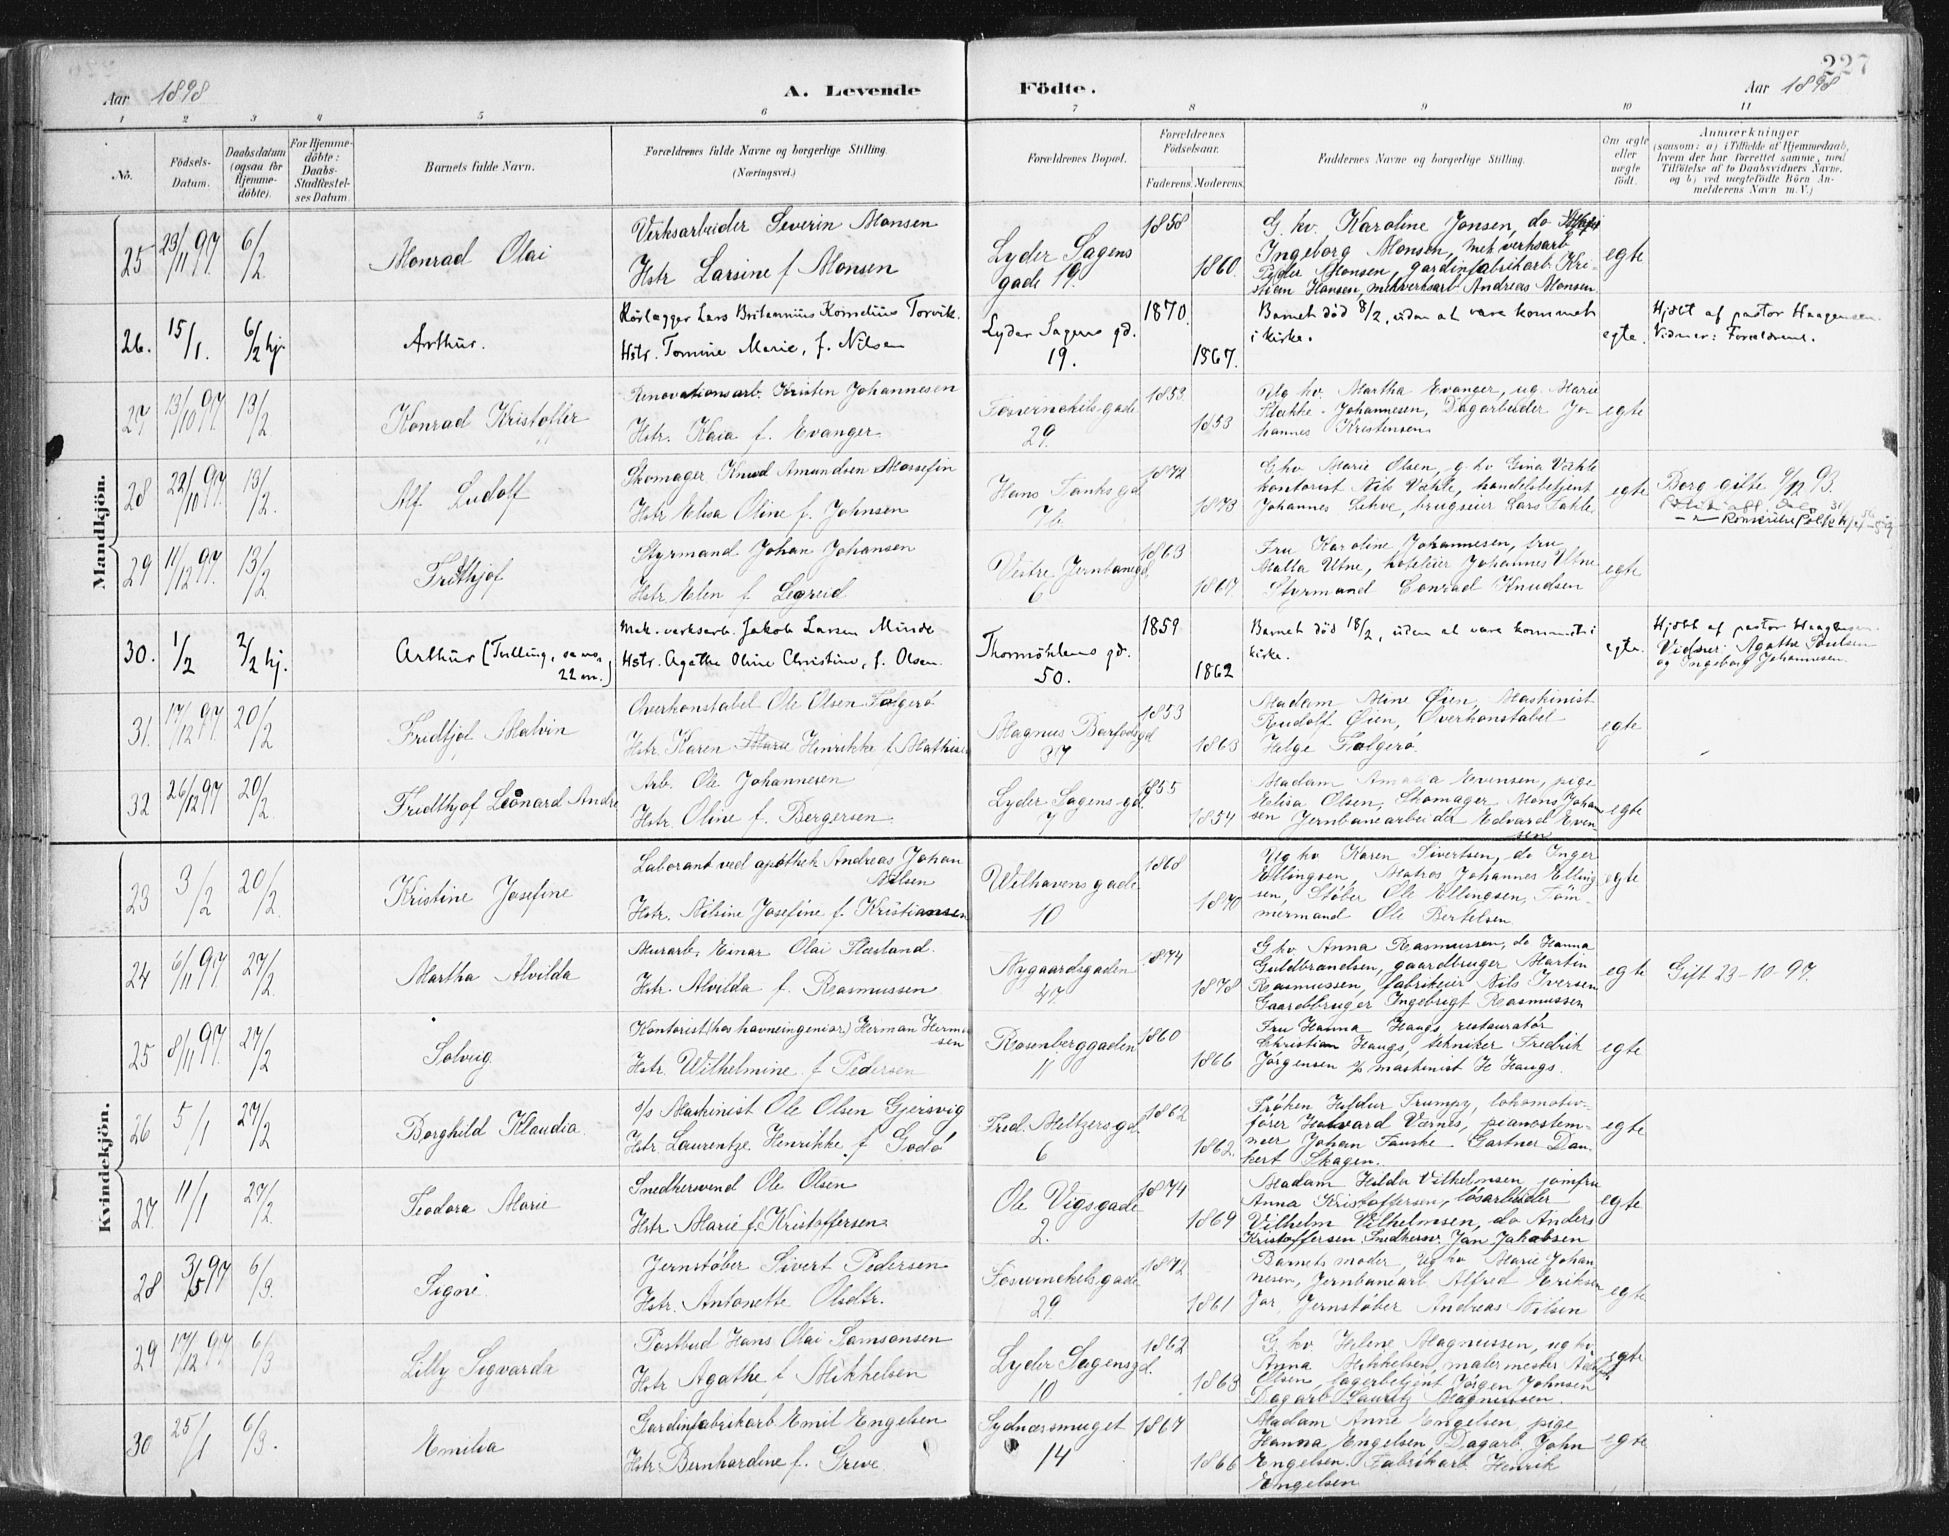 227
Aar 1898
A. Levende Födte.
Aar 1898
1 2 3 4 5 6 7 8 9 10 11
No.
Födsels-Datum.
Daabsdatum (ogsaa for Hjemmedöbte).
For Hjemmedöbte: Daabs-Stadfæstelses Datum
Barnets fulde Navn.
Forældrenes fulde Navne og borgerlige Stilling. (Næringsvei.)
Forældrenes Bopæl.
Forældrenes Födselsaar.
Faderens. Moderens.
Faddernes Navne og borgerlige Stilling.
Om ægte eller uægte født.
Anmærkninger
(saasom: a) i Tilfælde af Hjemmedaab, hvem der har forrettet samme, med Tilföielse af to Daabsvidners Navne. og b) ved uægtefödte Börn Anmelderens Navn m. V.)
Mandkjön.
25 23/11 97. 6/2 Monrad Olai
Verksarbeider Severin Monsen
Hstr Larsine f Monsen
Lyder Sagens gade 19.
1858 1860.
G. kv. Karoline Jonsen, do
Ingeborg Monsen, mek verksarb
Peder Monsen, gardinfabrikarb. Kri-
stian Hansen, mekverksarb Andreas Monsen
egte
26. 15/1. 6/2 hj. Arthur.
Rörlægger Lars Britannius Kornelius Torvik.
Hstr. Tomine Marie, f. Nilsen
Lyder Sagens gd. 19.
1870. 1867.
Barnet död 8/2, uden at være kommet
i kirke.
egte.
Hjdbt af pastor Haagensen.
Vidner: Forældrene.
27 13/10 97. 13/2 Konrad Kristoffer
Renovationsarb. Kristen Johannesen
Hstr. Kaia f. Evanger
Foswinckelsgade 29.
1853 1853
Ug kv. Martha Evanger, ug. Marie
Stakke Johannesen, Dagarbeider Jo-
hannes Kristensen
egte
28 22/10 97 13/2. Alf Ludolf
Skomager Knud Amundsen Mossefin
Hstr Elisa Oline f. Johnsen
Hans Tanks gd 7b
1872 1873
G kv Marie Olsen, g. kv Gina Vahle
kontorist Nils Vahle, handelsbetjent
Johannes Lekve, brugseier Lars Tahle
egte
Borg. gifte 9/12 93.
29 11/12 97. 13/2 Fridthjof
Styrmand Johan Johansen
Hstr Elen f Legreid
Vestre Jernbanegd, 6
1863 1867.
Fru Karoline Johannesen, fru
Malla Utne, hoteleier Johannes Utne
Styrmand Conrad Knudsen
egte
30. 1/2 2/2 hj. Arthur (Tvilling, sa no. 22 m.)
Mek. verksarb. Jakob Larsen Minde
Hstr. Agathe Oline Christine, f. Olsen.
Thormöhlens gd. 50.
1859 1862
Barnet död 18/2, uden at være kommet i
kirke.
egte.
Hjdbt af pastor Haagensen.
Vidner: Agathe Poulsen
og Ingeborg Johannesen.
31. 17/12 97 20/2 Fridtjof Malvin
Overkonstabel Ole Olsen Folgerö
Hstr Karen Marie Henrikke f Mathisen
Magnus Barfodsgd 37
1853 1863
Madam Mine Øien, Maskinist
Rudolf Øien, Overkonstabel
Helge Folgerö.
egte
32 26/12 97 20/2. Fridthjof Leonard Andre
Arb. Ole Johannesen
Hstr. Oline f. Bergersen
Lyder Sagens gd. 7
1855 1854
Madam Amanda Evensen, pige
Elisa Olsen, Skomager Mons Johan-
sen Jernbanearbeider Edvard Even-
sen
egte
Kvindekjön.
23 3/2 20/2. Kristine Josefine
Laborant ved apothek Andreas Johan
Nilsen
Hstr. Nilsine Josefine f. Kristiansen
Welhavens gade 10
1868 1870
Ug kv Karen Sivertsen, do Inger
Ellingsen, Matros Johannes Elling-
sen, Støber Ole Ellingsen, Töm-
mermand Ole Bertelsen
egte
24 6/11 97 27/2. Martha Alvilda
Murarb. Einar Olai Flæsland.
Hstr. Alvilda f. Rasmussen
Nygaardsgaden 47.
1874 1878
G kv. Anna Rasmussen, do Hanna
Guldbrandsen, gaardbruger Martin
Rasmussen, fabrikeier Nils Iversen
Gaardbruger Ingebrigt Rasmussen
egte
Gift 23-10-97.
25 8/11 97. 27/2 Solveig
Kontorist (hos havneingeniør.) Herman Herman-
sen
Hstr. Wilhelmine f Pedersen
Rosenberggaden 11
1860 1866
Fru Hanna Haugs, restauratör
Christian Haugs, tekniker Fredrik
Jörgensen s/s maskinist H Haugs.
egte
26 5/1 27/2 Borghild Klaudia.
s/s Maskinist Ole Olsen Gjersvig
Hstr. Laurentze Henrikke f Godö
Fred. Meltzers gd. 6
1862 1862.
Fröken Hildur Trumpy, lokomotiv-
förer Halvard Værnes, pianostem-
mer Johan Fauske Gartner Dan-
kert Skagen.
egte
27. 11/1 27/2. Teodora Marie
Snedkersvend Ole Olsen
Hstr. Marie f. Kristoffersen
Ole Vigs gade 2.
1874 1869
Madam Hilda Vilhelmsen jomfru
Anna Kristoffersen, løsarbeider
Vilhelm Vilhelmsen, do Anders
Kristoffersen. Snedkersv. Jan Jakobsen
egte
28 3/5 97 6/3. Signe
Jernstøber Sivert Pedersen
Hstr. Antonette Olsdtr.
Foswinckelsgade 29
1872 1861
Barnets moder, Ug kv Marie Johan-
nesen, Jernbanearb Alfred Eriksen
Jar, Jernstøber Andreas Nilsen
egte
29 17/12 97 6/3 Lilly Sigvarda
Postbud Hans Olai Samsonsen
Hstr Agathe f Mikkelsen
Lyder Sagensgd. 10
1862 1863
G kv. Helene Magnussen, ug kv
Anna Mikkelsen, malermester Adolf
Olsen, lagerbetjent Jörgen Johnsen
Dagarb Lauritz Magnussen.
egte
30 25/1 6/3. Emilia
Gardinfabrikarb Emil Engelsen
Hstr Bernhardine f. Greve
Sydnæssmuget 14
1867 1866
Madam Anne Engelsen, pige
Hanna Engelsen Dagarb. John
Engelsen. Fabrikarb Henrik
Engelsen
egte